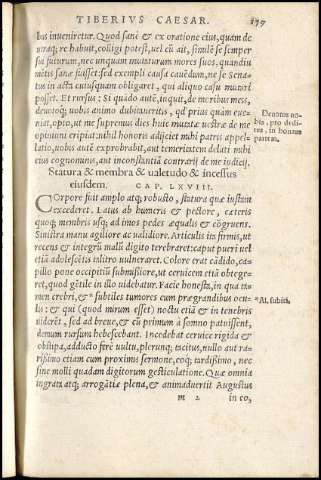 TIBERIVS CAESAR. 179
bus inueniretur. Quod sanè & ex oratione eius, quam de
utraq; re habuit, colligi potest, uel cū ait, similē se semper
sui futurum, nec unquam mutaturum mores suos, quandiu
mētis sanæ fuisset: sed exempli causa cauēdum, ne se Sena-
tus in acta cuiusquam obligaret, qui aliquo casu mutari
posset. Et rursus: Si quādo autē, inquit, de meribus meis,
deuotoq; uobis animo dubitaueritis, qd prius quam eue-
niat, opto, ut me supremus dies huic mutatæ uestræ de me
opinioni eripiat: nihil honoris adijciet mihi patris appel-
latio, uobis autē exprobrabit, aut temeritatem delati mihi
eius cognominis, aut inconstantiā contrarij de me iudicij.
Deuotus uo-
bis, pro dedi-
tus, in bonam
partem.
Statura & membra & ualetudo & incessus
eiusdem. CAP. LXVIII.
COrpore fuit amplo atq; robusto, statura quæ iustam
excederet. Latus ab humeris & pectore, cæteris
quoq; membris usq; ad imos pedes æqualis & cōgruens.
Sinistra manu agiliore ac ualidiore. Articulis ita firmis, ut
recens & integrū malū digito terebraret: caput pueri uel
etiā adolescētis talitro uulneraret. Colore erat cādido, ca-
pillo pone occipitiū submissiore, ut ceruicem etiā obtege-
ret, quod gētile in illo uidebatur. Facie honesta, in qua ta-
men crebri, & * subtiles tumores cum prægrandibus ocu-
lis: & qui (quod mirum esset) noctu etiā & in tenebris
uiderēt, sed ad breue, & cū primum à somno patuissent,
deinde rursum hebescebant. Incedebat ceruice rigida &
obstipa, adducto ferè uultu, plerunq; tacitus, nullo aut ra-
rissimo etiam cum proximis sermone, eoq; tardissimo, nec
sine molli quadam digitorum gesticulatione. Quæ omnia
ingrata atq; arrogātiæ plena, & animaduertit Augustus
* Al. subiti,
m 2 in eo,